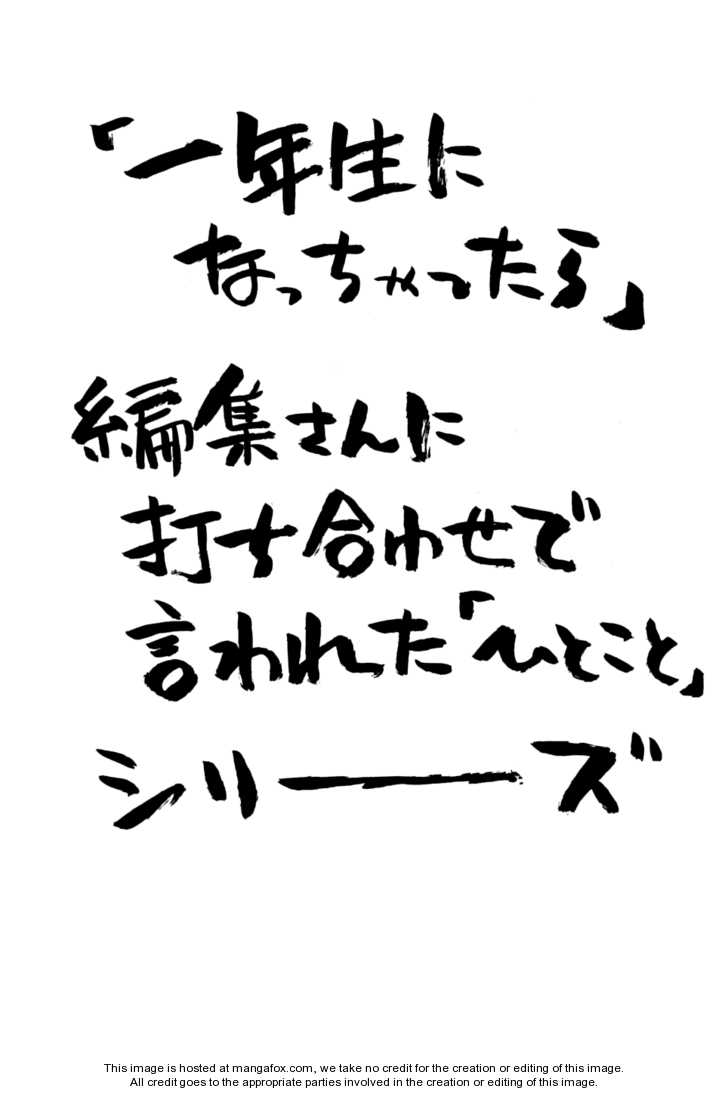 「一年生に
なっちゃったら」
編集さんに
打ち合わせで
言われた「ひとこと」
シリーズ
This image is hosted at mangafox.com, we take no credit for the creation or editing of this image.
All credit goes to the appropriate parties involved in the creation or editing of this image.